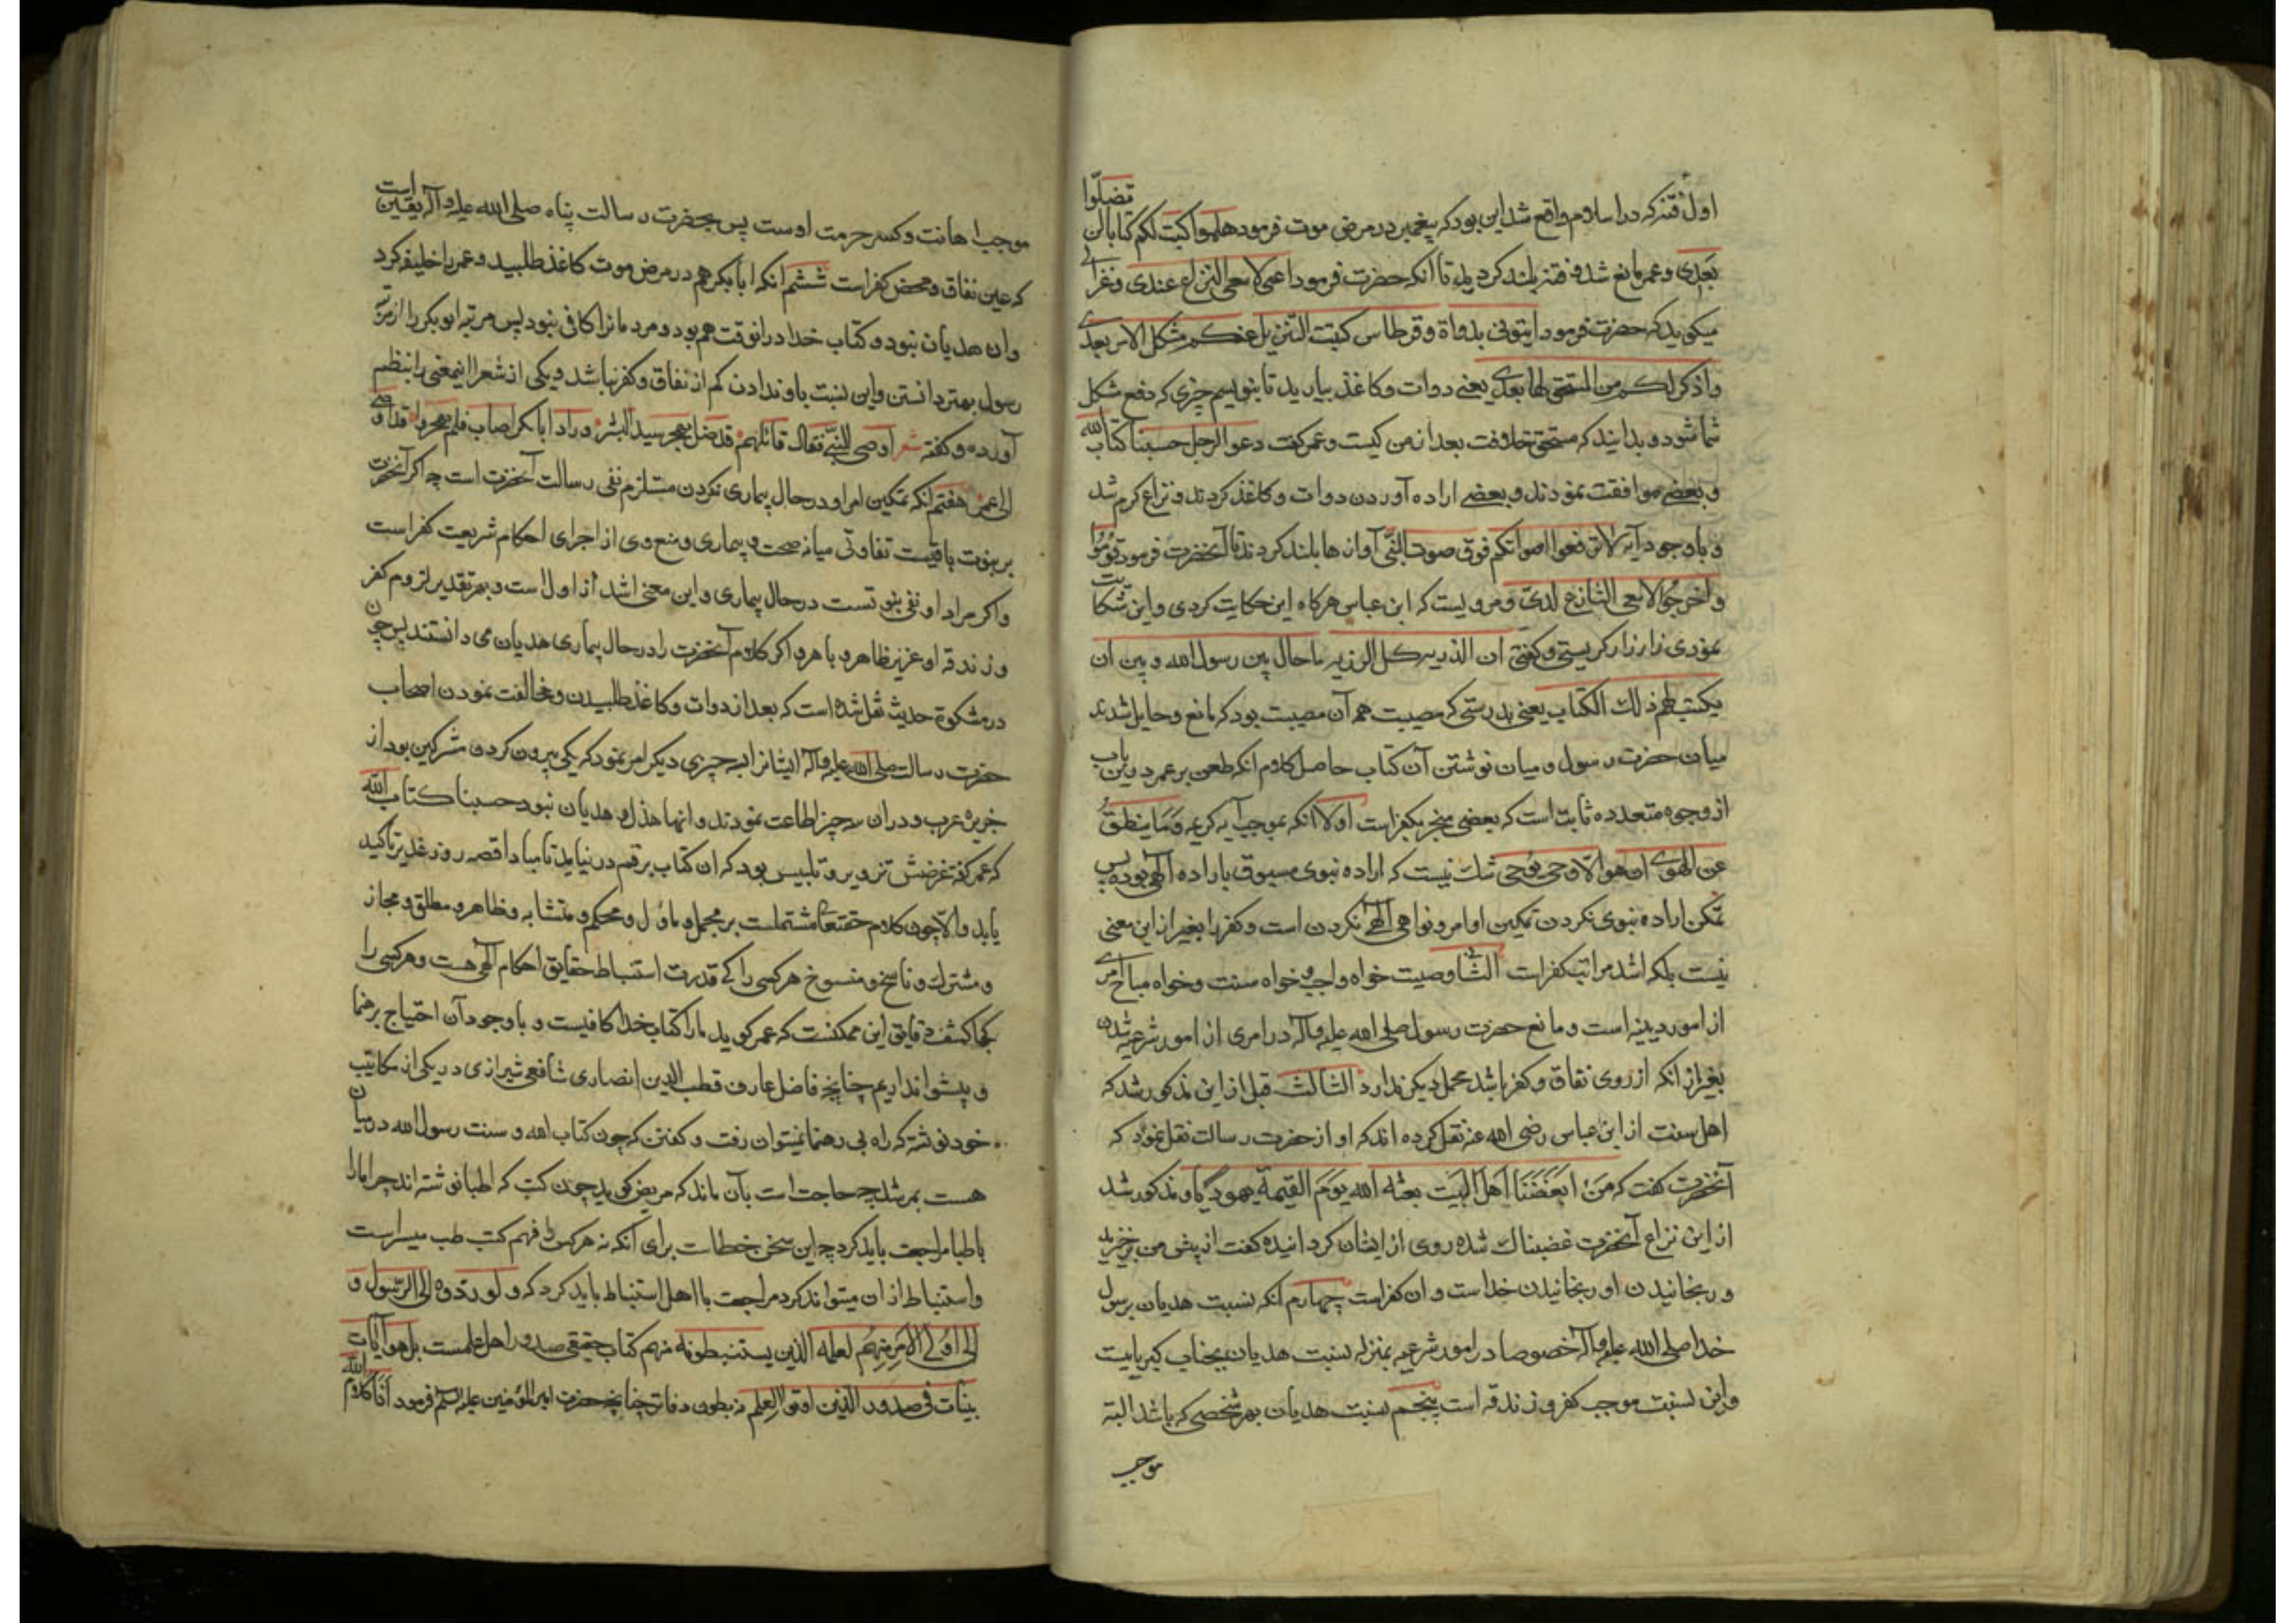 اول فتنه که در اسلام واقع شد این بود که پیغمبر در مرض موت فرمود هلموا اکتب لکم کتابا لن تضلّوا
بعدی و عمر مانع شد و فتنه بلند کردید تا آنکه حضرت فرمود اعنی لا ینبغی النزاع عندی و غزالی
میکوید که حضرت فرمود ایتونی بدواة و قرطاس کتبت التنزیل عنکم مشکل الامر بعدی
و اذکر لکم من المستحق لها بعدی یعنی دوات و کاغذ بیارید تا بنویسم چیزی که دفع شکل
شما شود و بدانید که مستحق خلافت بعد از من کیست و عمر کفت دعوا الرجل حسبنا کتاب الله
و بعضی موافقت نمودند و بعضی اراده آوردن دوات و کاغذ کردند و نزاع کرم شد
و با وجود آیه لا ترفعوا اصواتکم فوق صوت النبی آوازها بلند کردند تا آنحضرت فرمود قوموا
و اخرجوا لا ینبغی التنازع لدی و مرویست که ابن عباس هرکاه این حکایت کردی و این شکایت
نمودی زار زار کریستی و کفتی ان الرزیه کل الرزیه ما حال بین رسول الله و بین ان
یکتب لهم ذلک الکتاب یعنی بدرستی که مصیبت همه آن مصیبت بود که مانع و حایل شدند
میان حضرت رسول و میان نوشتن آن کتاب حاصل کلام آنکه طعن بر عمر درین باب
از وجوه متعدده ثابت است که بعضی منجر بکفر است اولا آنکه بموجب آیه کریمه و ما ینطق
عن الهوی ان هو الا وحی یوحی شک نیست که اراده نبوی مسبوق باراده الهی بوده پس
تمکن اراده نبوی نکردن تمکین اوامر و نواهی الهی نکردن است و کفر را بغیر از این معنی
نیست بلکه اشد مراتب کفر است الثانی وصیت خواه واجب و خواه سنت و خواه مباح امری
از امور دینیه است و مانع حضرت رسول صلی الله علیه و آله در امری از امور شرعیه شدن
بغیر از آنکه از روی نفاق و کفر باشد محمل دیکر ندارد الثالث قبل از این مذکور شد که
اهل سنت از ابن عباس رضی الله عنه نقل کرده اند که او از حضرت رسالت نقل نمود که
آنحضرت کفت که من ابغضنا اهل البیت بعثه الله یوم القیمة یهودیا و مذکور شد
از این نزاع آنحضرت غضبناک شده روی از ایشان کردانیده کفت از پیش من برخیزید
و رنجانیدن او رنجانیدن خداست و ان کفر است چهارم آنکه نسبت هدیان برسول
خدا صلی الله علیه و آله خصوصا در امور شرعیه بمنزله نسبت هدیان بجناب کبریاییست
و این نسبت موجب کفر و زندقه است پنجم نسبت هدیان بهر شخصی که باشد البته
موجب
موجب اهانت و کسر حرمت اوست پس بحضرت رسالت پناه صلی الله علیه و آله یقین است
که عین نفاق و محض کفر است ششم آنکه ابابکر هم در مرض موت کاغذ طلبید و عمر را خلیفه کرد
و ان هدیان نبود و کتاب خدا در انوقت هم بود و مردمانرا کافی نبود پس مرتبه ابوبکر را از مرتبه
رسول بهتر دانستن و این نسبت باو ندادن کم از نفاق و کفر نباشد و یکی از شعرا اینمعنی را بنظم
آورده و کفته شعر اوصی النبی فقال قائلهم قد ضل یهجر سید البشر و راد ابابکر اصاب فلم یهجر و قد اوصی
الی عمر هفتم آنکه تمکین امر او در حال بیماری نکردن مستلزم نفی رسالت آنحضرت است چه اکر آنحضرت
بر نبوت باقیست تفاوتی میانه صحت و بیماری و منع وی از اجرای احکام شریعت کفر است
و اکر مراد او نفی نبوتست در حال بیماری و این معنی اشد از اول است و بهر تقدیر لزوم کفر
و زندقه او عزیز ظاهر و باهر و اکر کلام آنحضرت را در حال بیماری هدیان می دانستند پس چون
در مشکوة حدیث نقل شده است که بعد از دوات و کاغذ طلبیدن و مخالفت نمودن اصحاب
حضرت رسالت صلی الله علیه و آله ایشانرا بسه چیزی دیکر امر نمود که یکی بیرون کردن مشرکین بود از
جزیره عرب و در ان سه چیز اطاعت نمودند و انها هذل و هدیان نبود حسبنا کتاب الله
که عمر کفته غرضش تزویر و تلبیس بود که ان کتاب برقم در نیاید تا مبادا قصه روز غدیر تاکید
یابد و الا چون کلام حقتعالی مشتملست بر مجمل و ماول و محکم و متشابه و ظاهر و مطلق و مجاز
و مشترک و ناسخ و منسوخ هر کسی را کی قدرت استنباط حقایق احکام الهی هست و هر کسی را
کجا کشف دقایق این ممکنست که عمر کوید ما را کتاب خدا کافیست و با وجود آن احتیاج برهنما
و پیشوا نداریم چنانچه فاضل عارف قطب الدین انصاری شافعی شیرازی در یکی از مکاتیب
خود نوشته که راه بی رهنما نمیتوان رفت و کفتن که چون کتاب الله و سنت رسول الله در میان
هست بمرشد چه حاجت است بآن ماند که مریض کوید چون کتب که اطبا نوشته اند چرا ما را
باطبا مراجعت باید کرد چه این سخن خطاست برای آنکه نه هر کس را فهم کتب طب میسر است
و استنباط از ان میتواند کرد مراجعت با اهل استنباط باید کرد که و لو ردوه الی الرسول و
الی اولی الامر منهم لعلمه الذین یستنبطونه منهم کتاب حقیقی صدور اهل علمست بل هو آیات
بینات فی صدور الذین اوتوا العلم نه بطون دفاتر چنانچه حضرت امیرالمؤمنین علیه السلم فرمود انا کلام الله